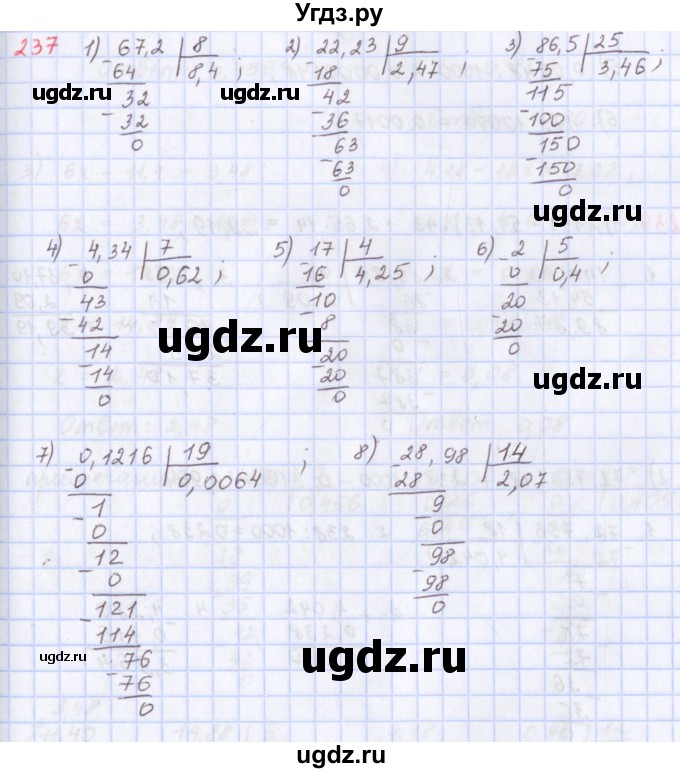 Угдз.ру
237 1) 67,2 | 8 ; 2) 22,23 | 9 ; 3) 86,5 | 25 ;
- 64 8,4 - 18 2,47 - 75 3,46
32 42 115
- 32 - 36 - 100
0 63 150
- 63 - 150
0 0
4) 4,34 | 7 ; 5) 17 | 4 ; 6) 2 | 5 ;
- 0 0,62 - 16 4,25 - 0 0,4
43 10 20
- 42 - 8 - 20
14 20 0
- 14 - 20
0 0
7) 0,1216 | 19 ; 8) 28,98 | 14
- 0 0,0064 - 28 2,07
1 9
- 0 - 0
12 98
- 0 - 98
121 0
- 114
76
- 76
0
ugdz.ru
ugdz.ru
ugdz.ru
ugdz.ru
ugdz.ru
ugdz.ru
ugdz.ru
ugdz.ru
ugdz.ru
ugdz.ru
ugdz.ru